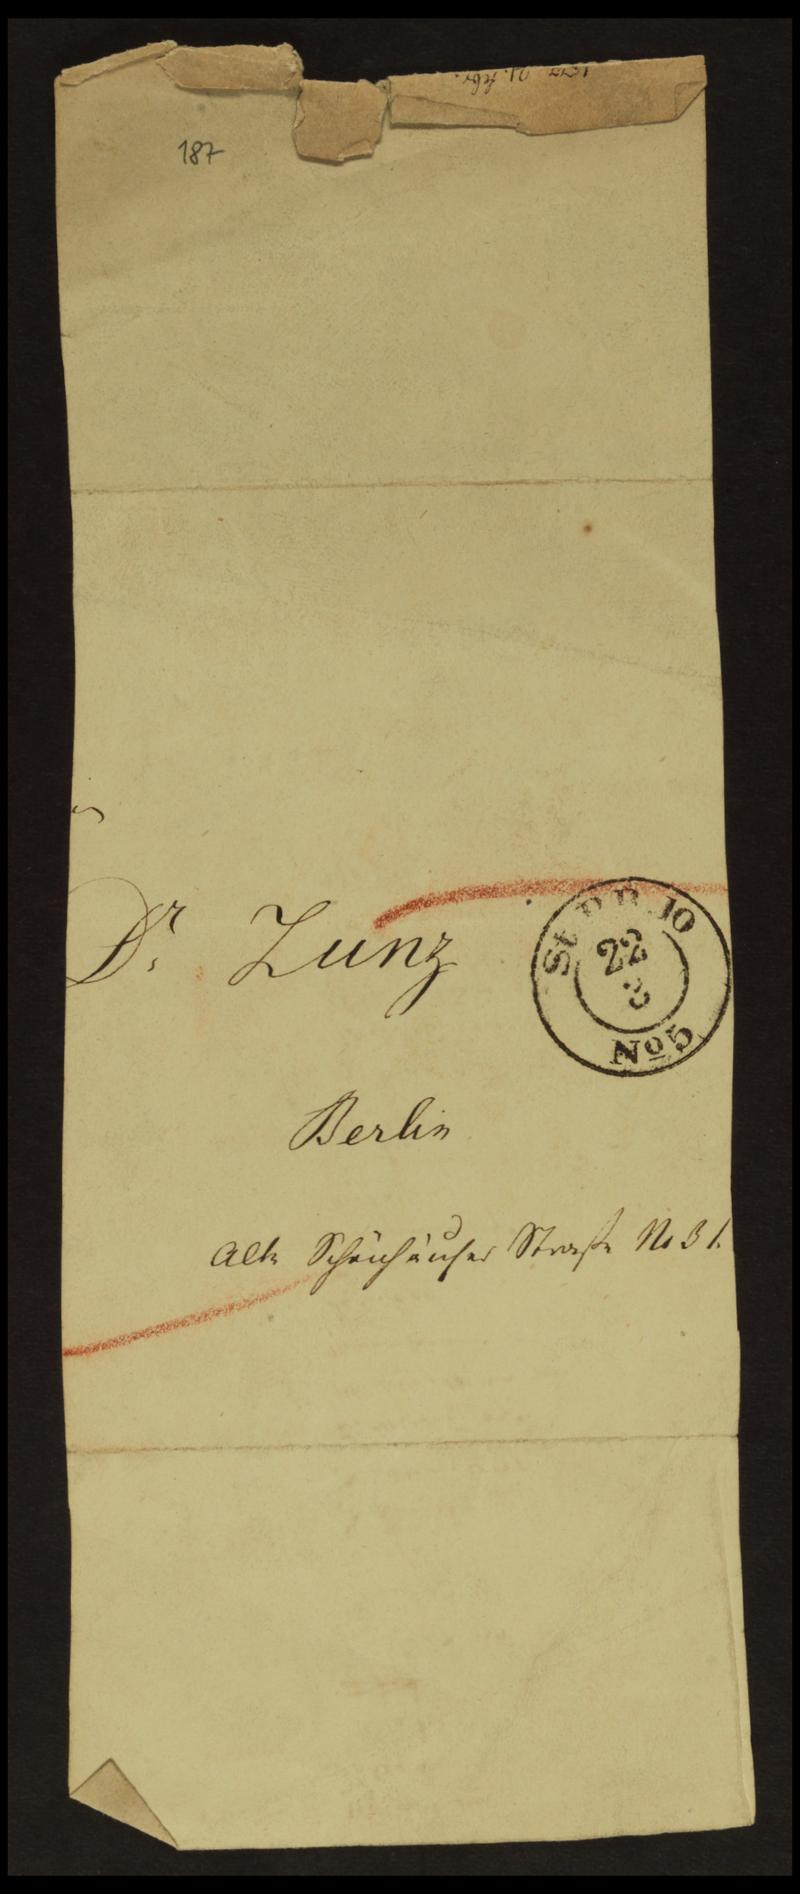 187
Dr. Zunz
St.P.D. 10
22
3
No 5
Berlin
Alte Schönhäuser Straße No 31.